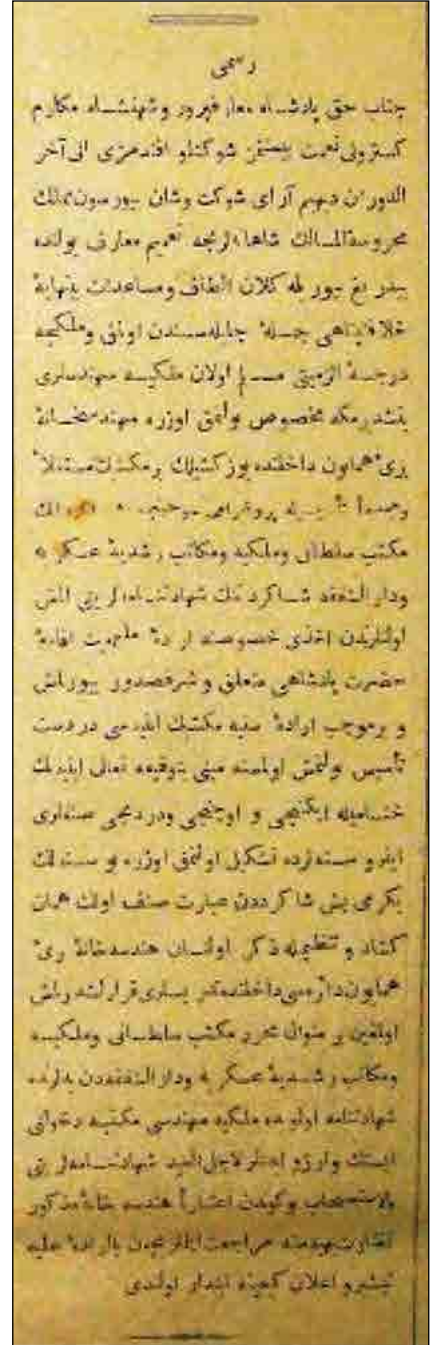 رسمی
جناب حق پادشاه معارفپرور و شهنشاه مکارم
کستر ولی نعمت بیمنتمز شوکتلو افندمزی الی آخر
الدوران دیهیم آرای شوکت وشان بیورسون ممالك
محروسة المسالك شاهانه‌لرنجه تعمیم معارف یولنده
بیدریغ بیورلمقده کلان الطاف ومساعدات بینهایهٔ
خلافتپناهی جملهٔ جلیله‌سندن اولمق وملکجه
درجهٔ الزمیتی مسلم اولان ملکیه مهندسلری
یتشدیرمکه مخصوص اولمق اوزره مهندسخانهٔ
بری همایون داخلنده یوز کشیلك بر مکتبك مستقلاً
مکتب سلطانی وملکیه ومکاتب رشدیهٔ عسکریه
ودار الشفقه شاکرداننك شهادتنامه‌لرینی المش
اولنلرندن اخذی خصوصنه ارادهٔ
حضرت پادشاهی متعلق و شرفصدور بیورلمش
و برموجب ارادهٔ سنیه مکتبك ابنیه‌سی در دست
تأسیس اولنمش اولمسنه مبنی بتوفیقه تعالی ابنیه‌نك
ختامیله ایکنجی و اوچنجی ودردنجی صنفلری
ایلرو سنه‌لرده تشکیل اولنمق اوزره بو سنه‌لك
یکرمی بش شاکرددن عبارت صنف اولك همان
کشاد و تنظیمیله ذکر اولنان هندسه‌خانهٔ بری
همایون دائره‌سی داخلنده تدریسلری قرارلشدیرلمش
اولمغین بر منوال محرر مکتب سلطانی وملکیه
ومکاتب رشدیهٔ عسکریه ودار الشفقه‌دن یدلرنده
شهادتنامه اولوبده ملکیه مهندسی مکتبنه دخولی
ایستك وارزو ایدنلر لاجل القید شهادتنامه‌لرینی
بالاستصحاب بوکوندن اعتباراً هندسه خانهٔ مذکور
نظارت بهیه‌سنه مراجعت ایلملری بالارادهٔ علیه
نشر و اعلان کیفیته ابتدار اولندی